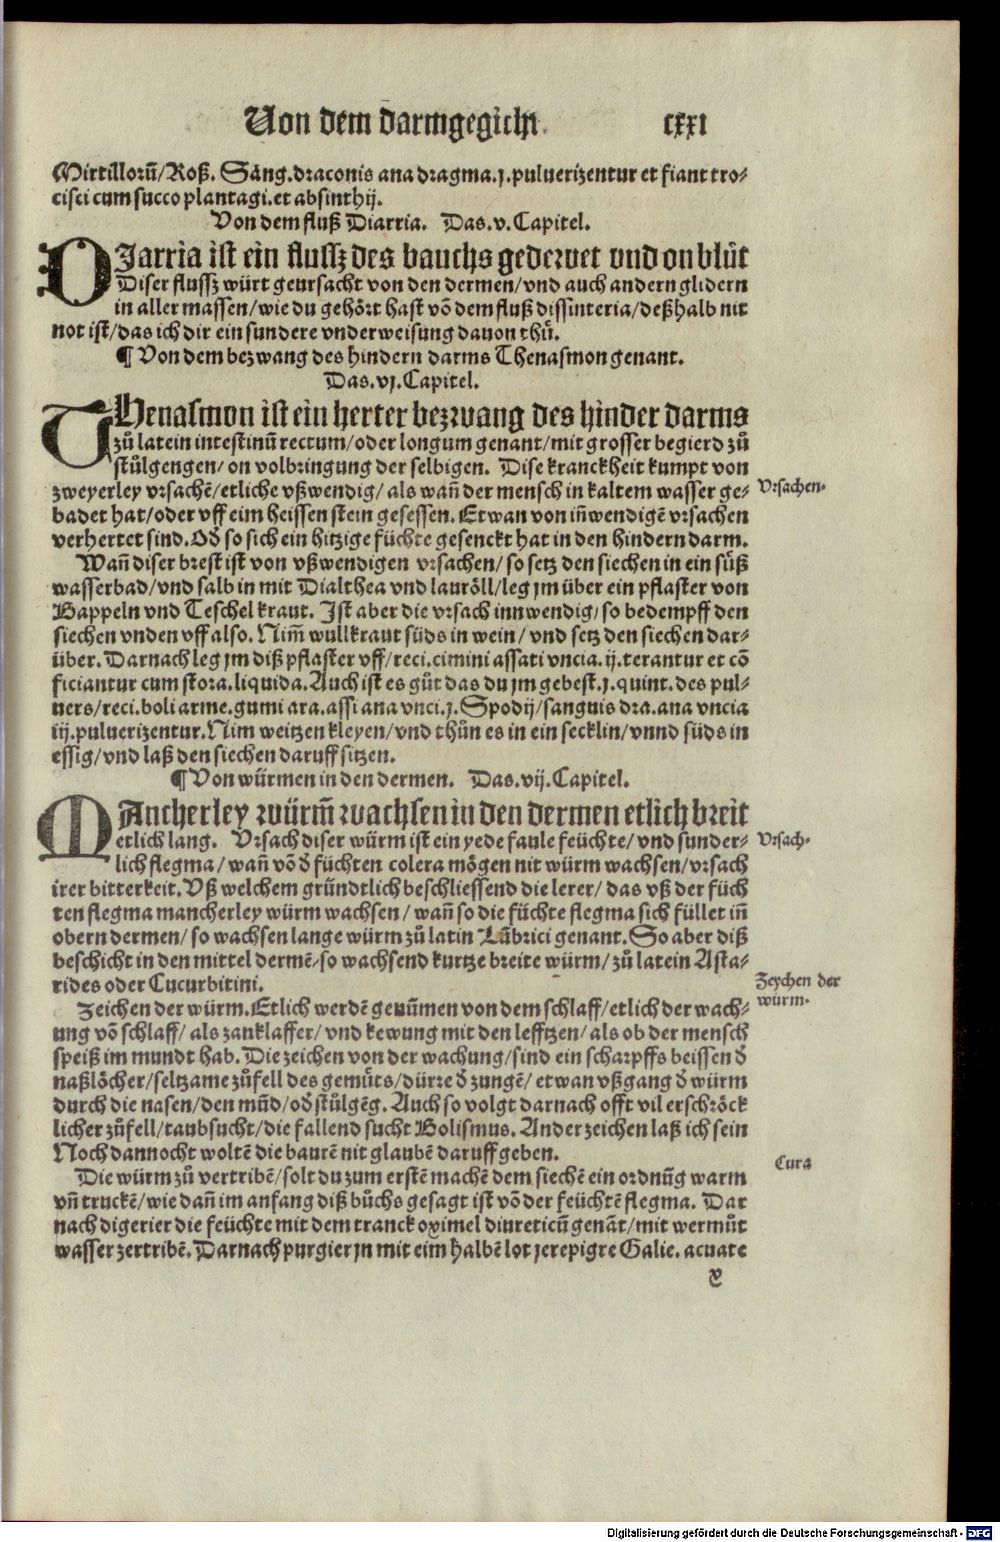 Von dem darmgegicht. cxxi
Mirtilloruͫ/Roß. Sāng.draconis ana dragma.j.puluerizentur et fiant tro-
cisci cum succo plantagi.et absinthij.
Von dem fluß Diarria. Das.v.Capitel.
DIarria ist ein flussz des bauchs gederuet vnd on blůt
Diser flussz würt geursacht von den dermen/vnd auch andern glidern
in aller massen/wie du gehört hast võ dem fluß dissinteria/deßhalb nit
not ist/das ich dir ein sundere vnderweisung dauon thů.
¶ Von dem bezwang des hindern darms Thenasmon genant.
Das.vj.Capitel.
THenasmon ist ein herter bezwang des hinder darms
zů latein intestinũ rectum/oder longum genant/mit grosser begierd zů
stůlgengen/on volbringung der selbigen. Dise kranckheit kumpt von
zweyerley vrsachẽ/etliche vßwendig/als wañ der mensch in kaltem wasser ge-
badet hat/oder vff eim heissen stein gesessen. Etwan von iñwendigẽ vrsachen
verhertet sind. Od̕ so sich ein hitzige füchte gesenckt hat in den hindern darm.
Vrsachen.
Wañ diser brest ist von vßwendigen vrsachen/so setz den siechen in ein süß
wasserbad/vnd salb in mit Dialthea vnd lauröll/leg jm über ein pflaster von
Bappeln vnd Teschel kraut. Jst aber die vrsach innwendig/so bedempff den
siechen vnden vff also. Nim̃ wullkraut süds in wein/vnd setz den siechen dar-
über. Darnach leg jm diß pflaster vff/reci.cimini assati vncia.ij.terantur et cõ
ficiantur cum stora.liquida.Auch ist es gůt das du jm gebest.j.quint.des pul-
uers/reci.boli arme.gumi ara.assi ana vnci.j.Spodij/sanguis dra.ana vncia
iij.puluerizentur.Nim weitzen kleyen/vnd thůn es in ein secklin/vnnd süds in
essig/vnd laß den siechen daruff sitzen.
¶ Von würmen in den dermen. Das.vij.Capitel.
MAncherley würm̃ wachsen in den dermen etlich breit
etlich lang. Vrsach diser würm ist ein yede faule feüchte/vnd sunder-
lich flegma/wañ võ d̕ füchten colera mögen nit würm wachsen/vrsach
irer bitterkeit. Vß welchem gründtlich beschliessend die lerer/das vß der füch
ten flegma mancherley würm wachsen/wañ so die füchte flegma sich füllet iñ
obern dermen/so wachsen lange würm zů latin Lũbrici genant. So aber diß
beschicht in den mittel dermẽ/so wachsend kurtze breite würm/zů latein Asta-
rides oder Cucurbitini.
Vrsach.
Zeichen der würm. Etlich werdẽ genũmen von dem schlaff/etlich der wach-
ung võ schlaff/als zanklaffer/vnd kewung mit den lefftzen/als ob der mensch
speiß im mundt hab. Die zeichen von der wachung/sind ein scharpffs beissen d̕
naßlöcher/seltzame zůfell des gemüts/dürre d̕ zungẽ/etwan vßgang d̕ würm
durch die nasen/den mũd/od̕ stůlgẽg. Auch so volgt darnach offt vil erschröck
licher zůfell/taubsucht/die fallend sucht Bolismus. Ander zeichen laß ich sein
Noch dannocht woltẽ die baurẽ nit glaubẽ daruff geben.
Zeychen der
würm.
Die würm zů vertribẽ/solt du zum erstẽ machẽ dem siechẽ ein ordnũg warm
vñ truckẽ/wie dañ im anfang diß bůchs gesagt ist võ der feüchtẽ flegma. Dar
nach digerier die feüchte mit dem tranck oximel diureticũ genãt/mit wermůt
wasser zertribẽ. Darnach purgier jn mit eim halbẽ lot jerepigre Galie. acuate
Cura
Digitalisierung gefördert durch die Deutsche Forschungsgemeinschaft - DFG